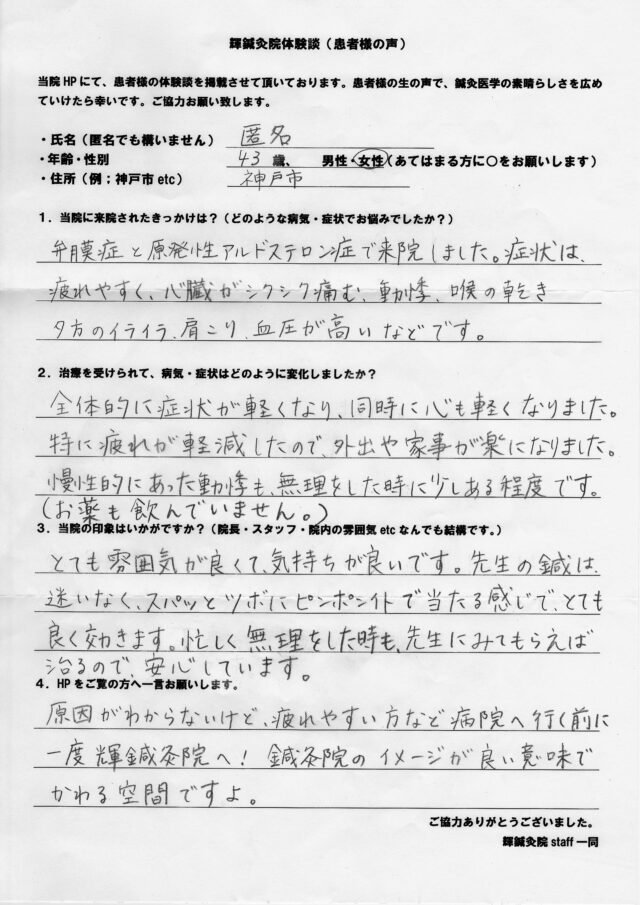 輝鍼灸院体験談（患者様の声）
当院HPにて、患者様の体験談を掲載させて頂いております。患者様の生の声で、鍼灸医学の素晴らしさを広め
ていけたら幸いです。ご協力お願い致します。
・氏名（匿名でも構いません） 匿名
・年齢・性別 43 歳、 男性・女性（あてはまる方に○をお願いします）
・住所（例；神戸市etc） 神戸市
1．当院に来院されたきっかけは？（どのような病気・症状でお悩みでしたか？）
弁膜症と原発性アルドステロン症で来院しました。症状は、
疲れやすく、心臓がシクシク痛む、動悸、喉の乾き
夕方のイライラ、肩こり、血圧が高いなどです。
2．治療を受けられて、病気・症状はどのように変化しましたか？
全体的に症状が軽くなり、同時に心も軽くなりました。
特に疲れが軽減したので、外出や家事が楽になりました。
慢性的にあった動悸も、無理をした時に少しある程度です。
（お薬も飲んでいません。）
3．当院の印象はいかがですか？（院長・スタッフ・院内の雰囲気etcなんでも結構です。）
とても雰囲気が良くて、気持ちが良いです。先生の鍼は、
迷いなく、スパッとツボにピンポイントで当たる感じで、とても
良く効きます。忙しく無理をした時も、先生にみてもらえば
治るので、安心しています。
4．HPをご覧の方へ一言お願いします。
原因がわからないけど、疲れやすい方など病院へ行く前に
一度輝鍼灸院へ！ 鍼灸院のイメージが良い意味で
かわる空間ですよ。
ご協力ありがとうございました。
輝鍼灸院staff一同